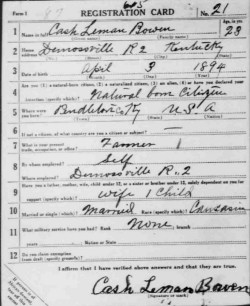 Form 1
REGISTRATION CARD
No. 21
1 Name in full Cash Leman Bowen Age in yrs. 23
2 Home address Demossville R2 Kentucky
3 Date of birth April 3 1894
4 Are you (1) a natural-born citizen, (2) a naturalized citizen, (3) an alien, (4) or have you declared your intention (specify which)? Natural born Citizen
5 Where were you born? Ky U S A
6 If not a citizen, of what country are you a citizen or subject?
7 What is your present trade, occupation, or office? Farmer 1
8 By whom employed? Self
Where employed? Demossville R. 2
9 Have you a father, mother, wife, child under 12, or a sister or brother under 12, solely dependent on you for support (specify which)? wife 1 Child
10 Married or single (which)? Married Race (specify which)? Caucasian
11 What military service have you had? Rank None branch
years Nation or State
12 Do you claim exemption from draft (specify grounds)?
I affirm that I have verified above answers and that they are true.
Cash Leman Bowen
(Signature or mark)